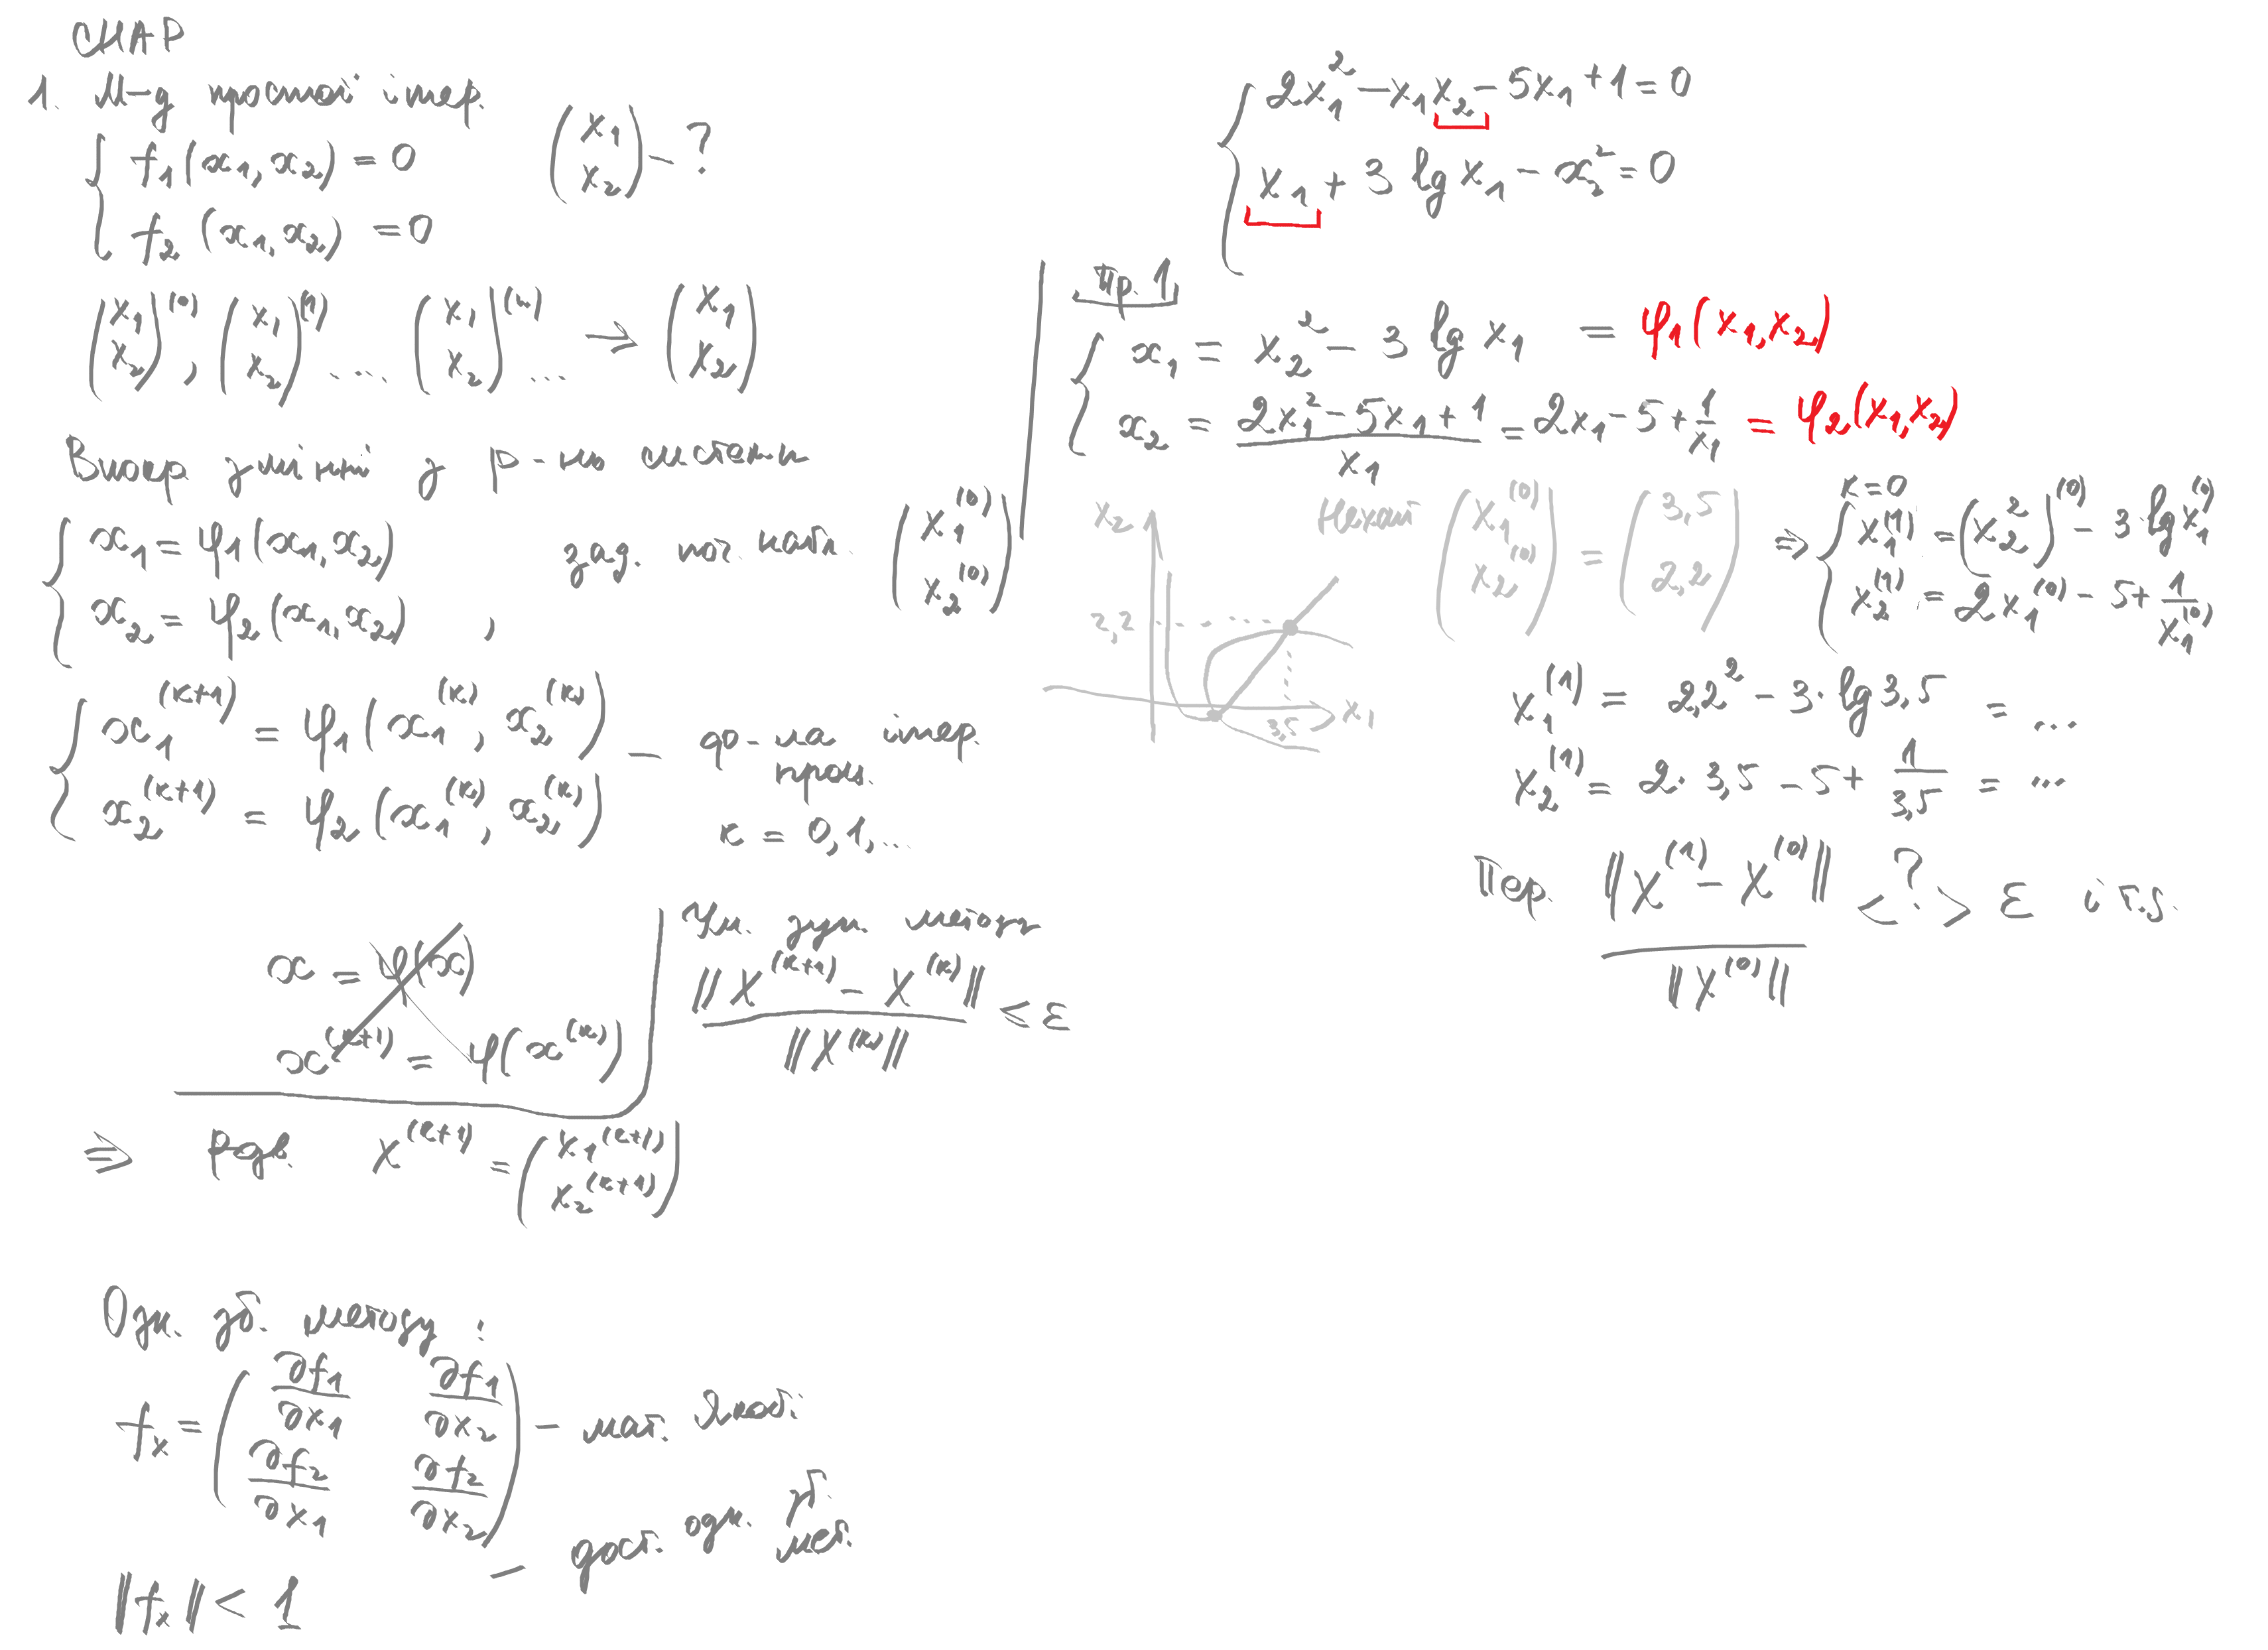 СНАР
1. М-д простої ітер.
{ f₁(x₁,x₂) = 0
f₂(x₁,x₂) = 0
(x₁ x₂) – ?
(x₁ x₂)⁽⁰⁾, (x₁ x₂)⁽¹⁾ .... (x₁ x₂)⁽ⁿ⁾ ... → (x₁ x₂)
Вираз змінні з р-нь системи
{ x₁ = φ₁(x₁,x₂)
x₂ = φ₂(x₁,x₂) ,
зад. поч. набл. (x₁⁽⁰⁾ x₂⁽⁰⁾)
{ x₁⁽ᵏ⁺¹⁾ = φ₁(x₁⁽ᵏ⁾, x₂⁽ᵏ⁾)
x₂⁽ᵏ⁺¹⁾ = φ₂(x₁⁽ᵏ⁾, x₂⁽ᵏ⁾)
– ф-ла ітер.
проц.
к = 0,1,...
x = φ(x)
x⁽ᵏ⁺¹⁾ = φ(x⁽ᵏ⁾)
Ум. зуп. методу
‖X⁽ᵏ⁺¹⁾ – X⁽ᵏ⁾‖ / ‖X⁽ᵏ⁾‖ ≤ ε
⇒ x⁽ᵏ⁺¹⁾ = (x₁⁽ᵏ⁺¹⁾ x₂⁽ᵏ⁺¹⁾)
Озн. зб. методу :
fₓ = (∂f₁/∂x₁ ∂f₁/∂x₂
∂f₂/∂x₁ ∂f₂/∂x₂) – мат. Якобі
‖fₓ‖ < 1
– дост. озн. зб. мет.
{ 2x₁² – x₁x₂ – 5x₁ + 1 = 0
x₁ + 3 lg x₁ – x₂² = 0
Пр. 1
{ x₁ = x₂² – 3 lg x₁ = φ₁(x₁,x₂)
x₂ = (2x₁² – 5x₁ + 1)/x₁ = 2x₁ – 5 + 1/x₁ = φ₂(x₁,x₂)
x₂
2,2
3,5
x₁
Нехай (x₁⁽⁰⁾ x₂⁽⁰⁾) = (3,5 2,2)
к=0
⇒ { x₁⁽¹⁾ = (x₂²)⁽⁰⁾ – 3·lg x₁⁽⁰⁾
x₂⁽¹⁾ = 2x₁⁽⁰⁾ – 5 + 1/x₁⁽⁰⁾
x₁⁽¹⁾ = 2,2² – 3·lg 3,5 = ...
x₂⁽¹⁾ = 2·3,5 – 5 + 1/3,5 = ...
Пер. ‖X⁽¹⁾ – X⁽⁰⁾‖ / ‖X⁽⁰⁾‖ <?> ε і т.д.